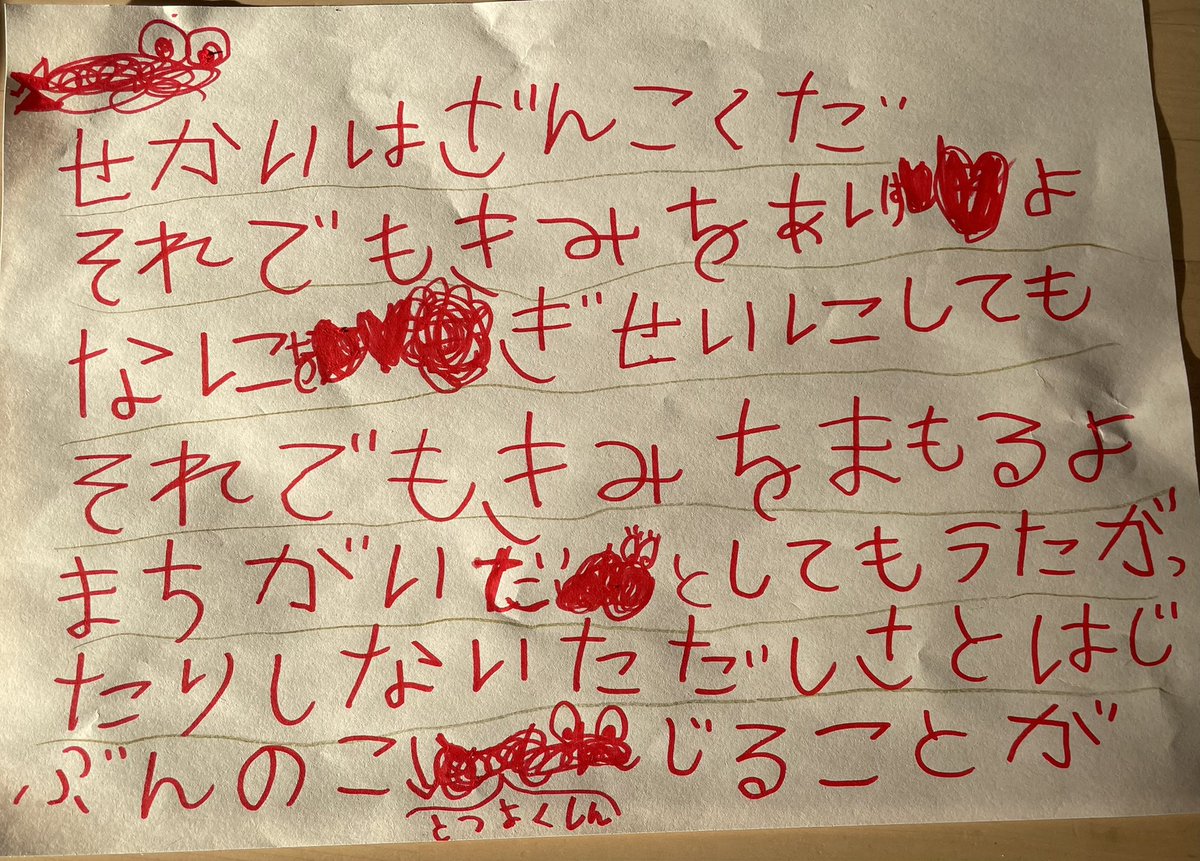 せかいはざんこくだ
それでもきみをあいすよ
なにをぎせいにしても
それでもきみをまもるよ
まちがいだとしてもうたがっ
たりしないただしさとはじ
ぶんのこ じることが
とつよくしん